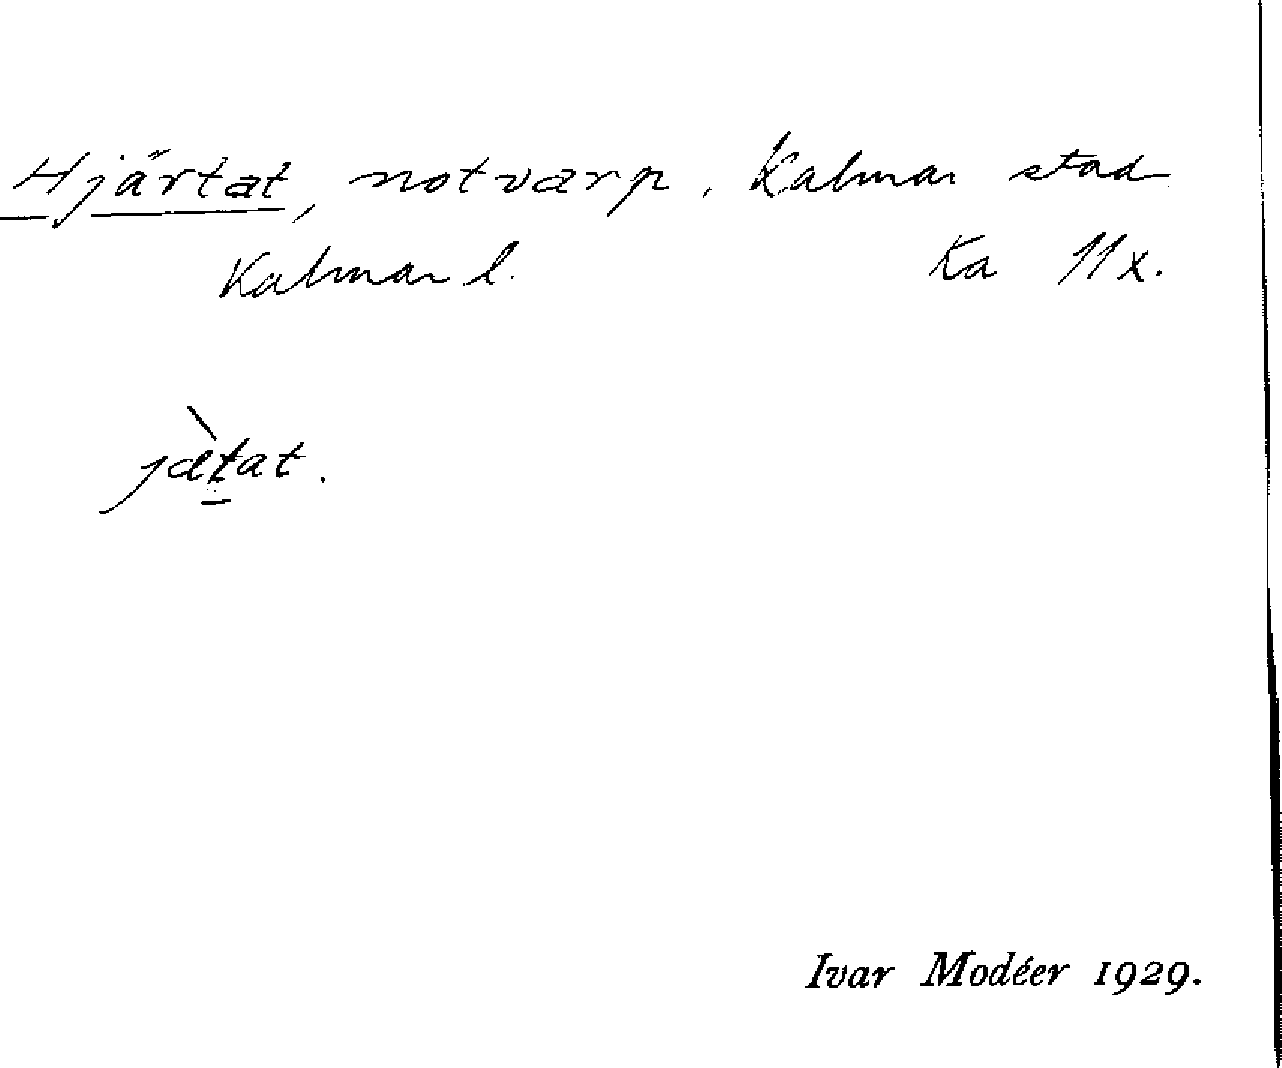 Hjärtat, notvarp. Kalmar stad
Kalmar l. Ka 11x.
jætat.
Ivar Modéer 1929.